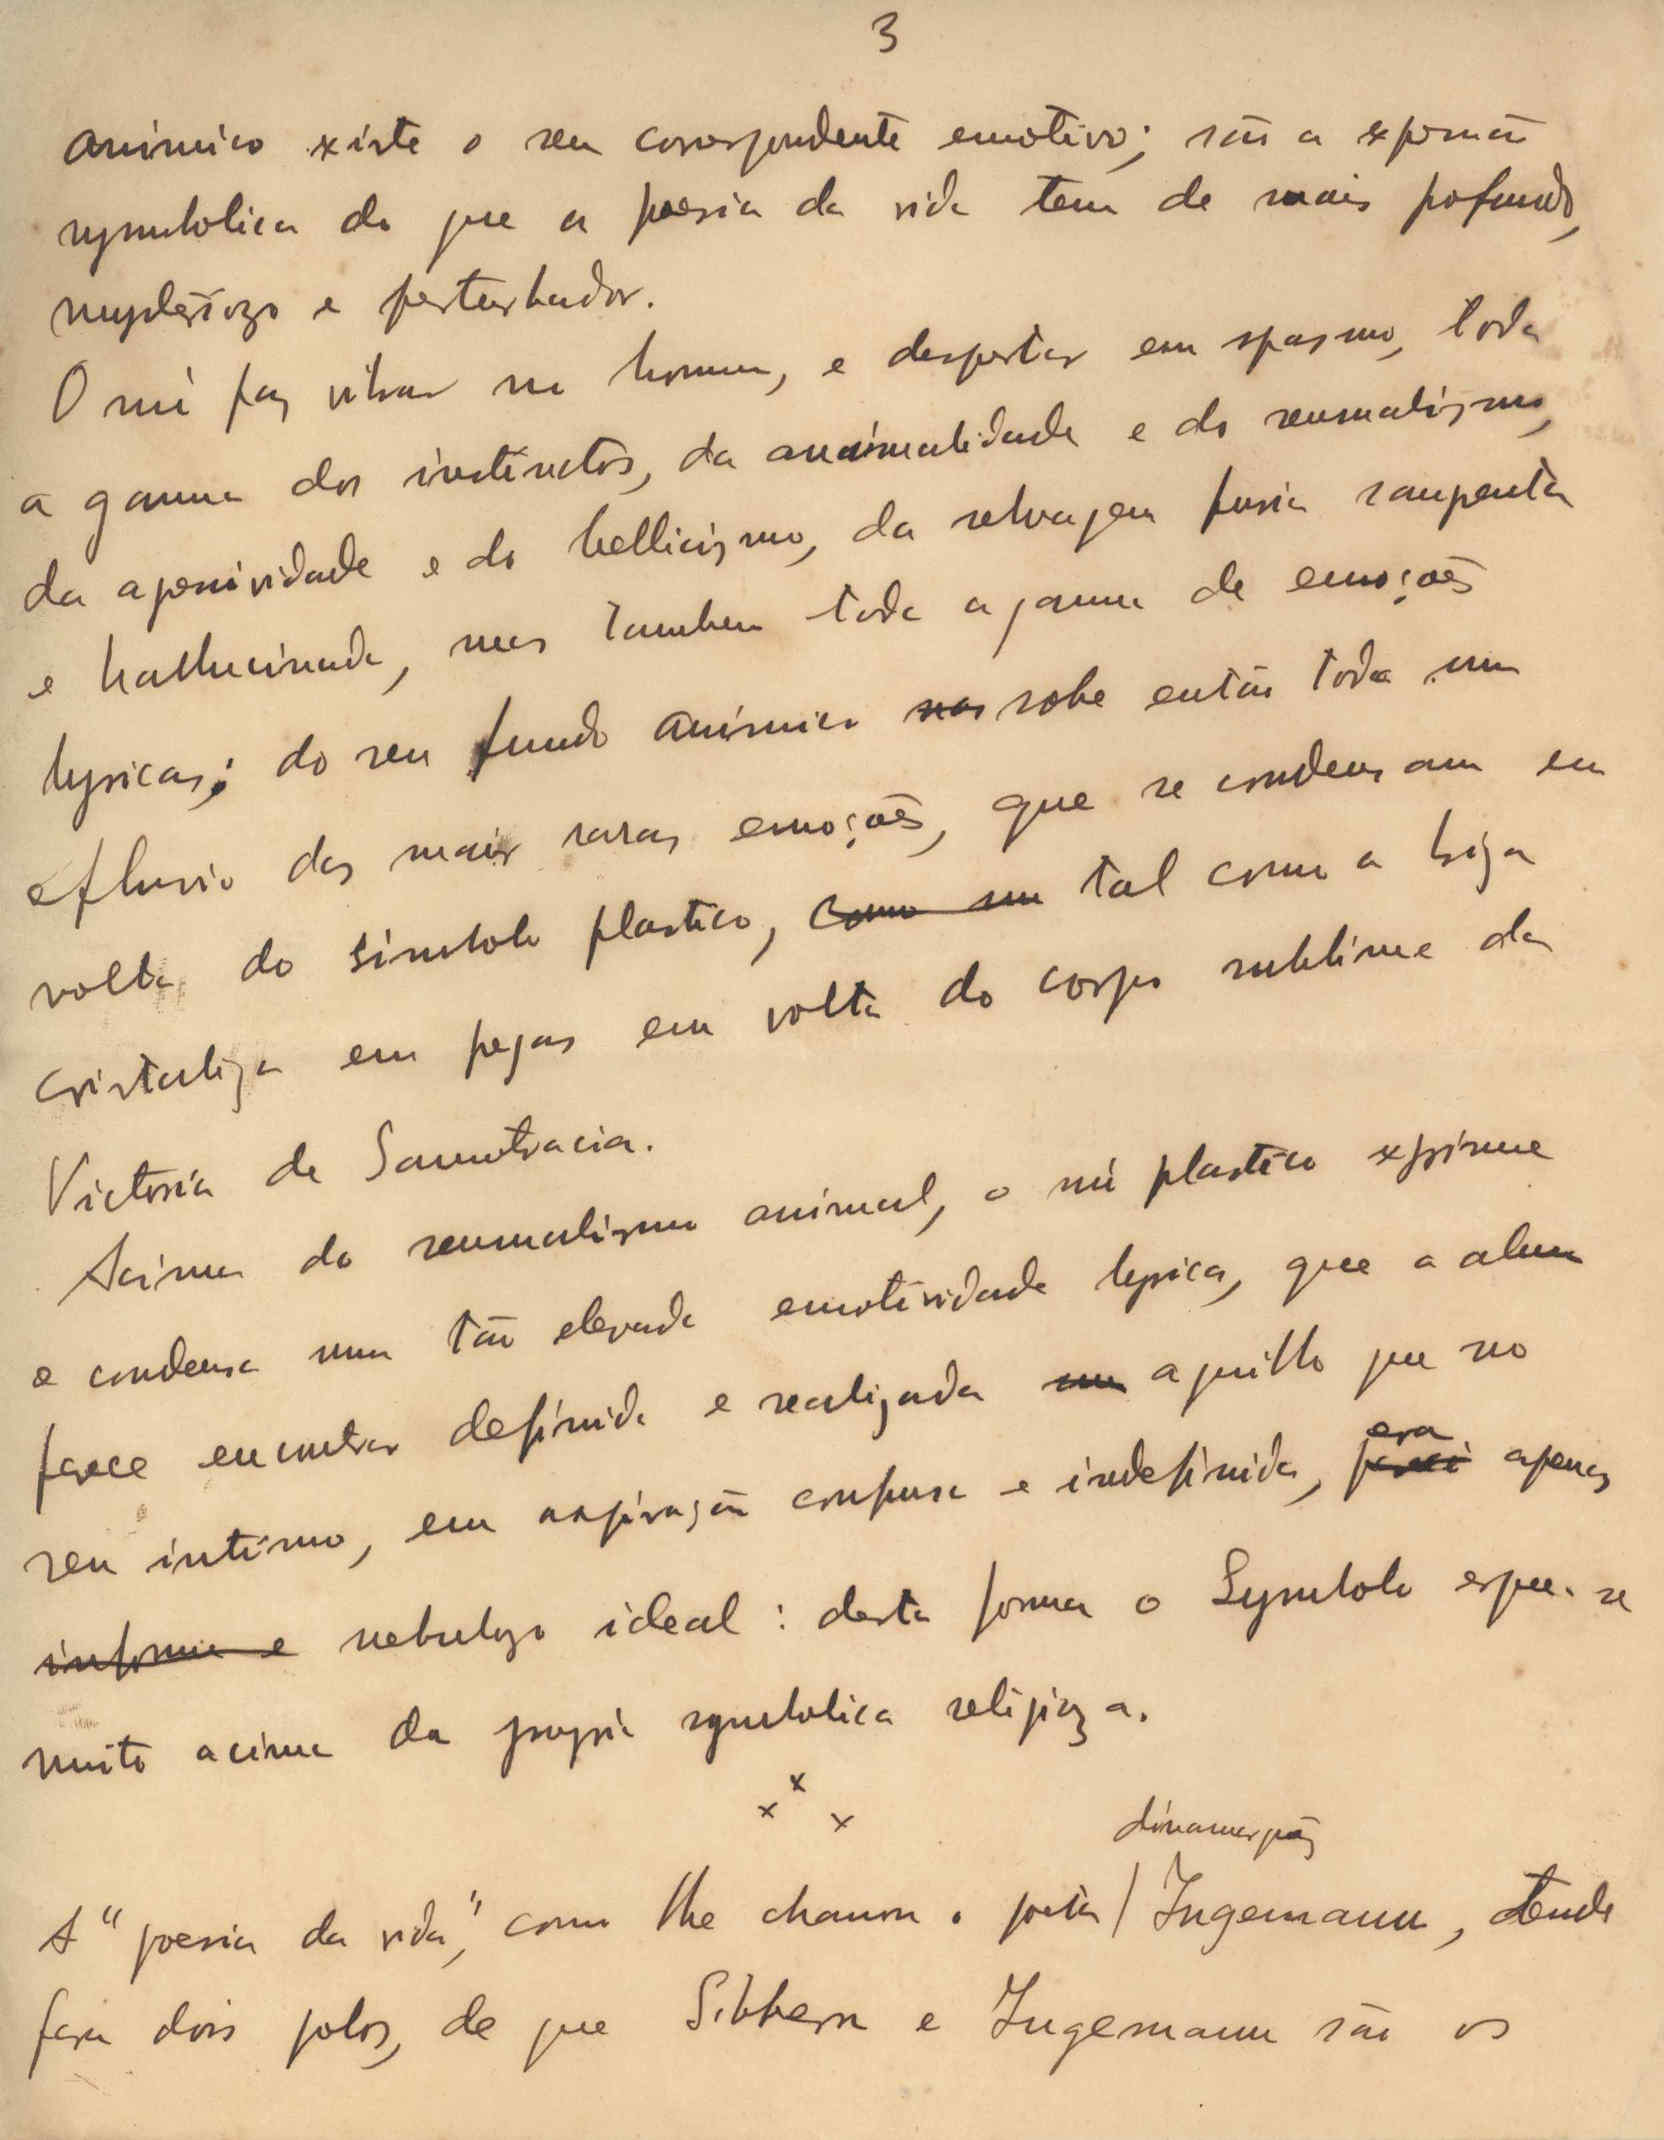 3
animico existe o seu correspondente emotivo; são a expressão
symbolica do que a poesia da vida tem de mais profundo,
mysteriozo e perturbador.
O nú faz vibrar no homem, e despertar em spasmo, toda
a gamma dos instinctos, da animalidade e do sensualismo,
da agressividade e do bellicismo, da selvagem furia sangrenta
e hallucinada, mas tambem toda a gamma de emoções
lyricas; do seu fundo animico nos sobe então todo um
efluvio das mais raras emoções, que se condensam em
volta do simbolo plastico, como um tal como a briza
cristaliza em pregas em volta do corpo sublime da
Victoria de Samotracia.
Acima do sensualismo animal, o nú plastico exprime
e condensa uma tão elevada emotividade lyrica, que a alma
parece encontrar definida e realizada um aquillo que no
seu intimo, em aspiração confusa e indefinida, era apenas
informe e nebulozo ideal: desta forma o Symbolo ergue-se
muito acima da propria symbolica religioza.
x x x
dinamarquês
A "poesia da vida", como lhe chamou o poeta / Ingemann, tende
para dois polos, de que Sibbern e Ingemann são os